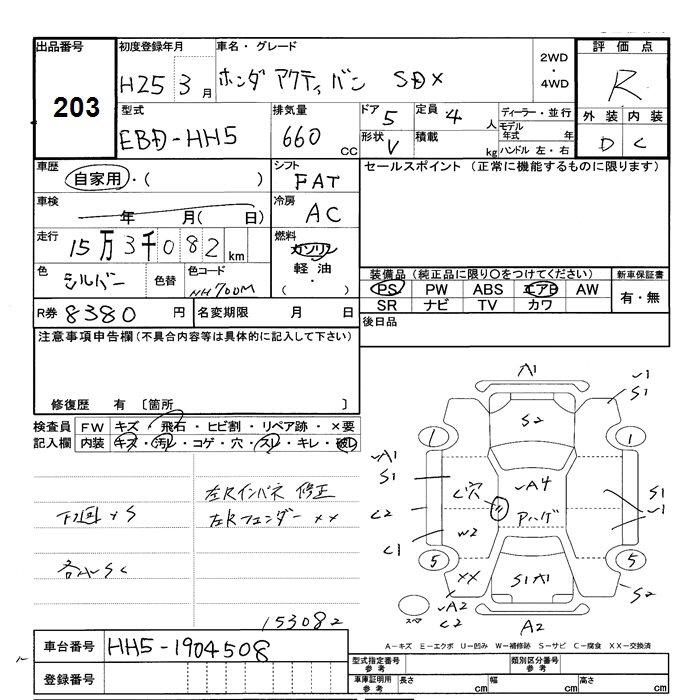 出品番号
203
初度登録年月
H25 3月
車名・グレード
ホンダ アクティ バン SDX
2WD
・
4WD
評価点
R
外装 内装
D C
型式
EBD-HH5
排気量
660 CC
ドア 5
定員 4 人
形状 V
積載 kg
ディーラー・並行
モデル年式 年
ハンドル 左・右
車歴
自家用・( )
シフト
FAT
セールスポイント (正常に機能するものに限ります)
車検
年 月( 日)
冷房
AC
走行
15万3千082 km
燃料
ガソリン
軽油
・
( )
色
シルバー
色替
色コード
NH700M
装備品 (純正品に限り〇をつけてください)
新車保証書
PS PW ABS エアB AW
SR ナビ TV カワ
有・無
R券 8380 円
名変期限 月 日
後日品
注意事項申告欄(不具合内容等は具体的に記入して下さい)
修復歴 有 〔箇所 〕
検査員 FW キズ・飛石・ヒビ割・リペア跡・×要
記入欄 内装 キズ・汚レ・コゲ・穴・スレ・キレ・破レ
左Rインパネ 修正
下回 サS
左Rフェンダー ××
各ハSC
153082
A1
S2
✓1
S1
1
1
✓A1
S1
C穴
✓A4
アハゲ
S1
✓1
C2
C1
W2
5
5
××
S1 A1
S2
✓A2
C2
スペア
A2
A－キズ E－エクボ U－凹み W－補修跡 S－サビ C－腐食 XX－交換済
車台番号 HH5-1904508
登録番号
型式指定番号
参考
類別区分番号
参考
車庫証明用
参考
長さ cm
幅 cm
高さ cm